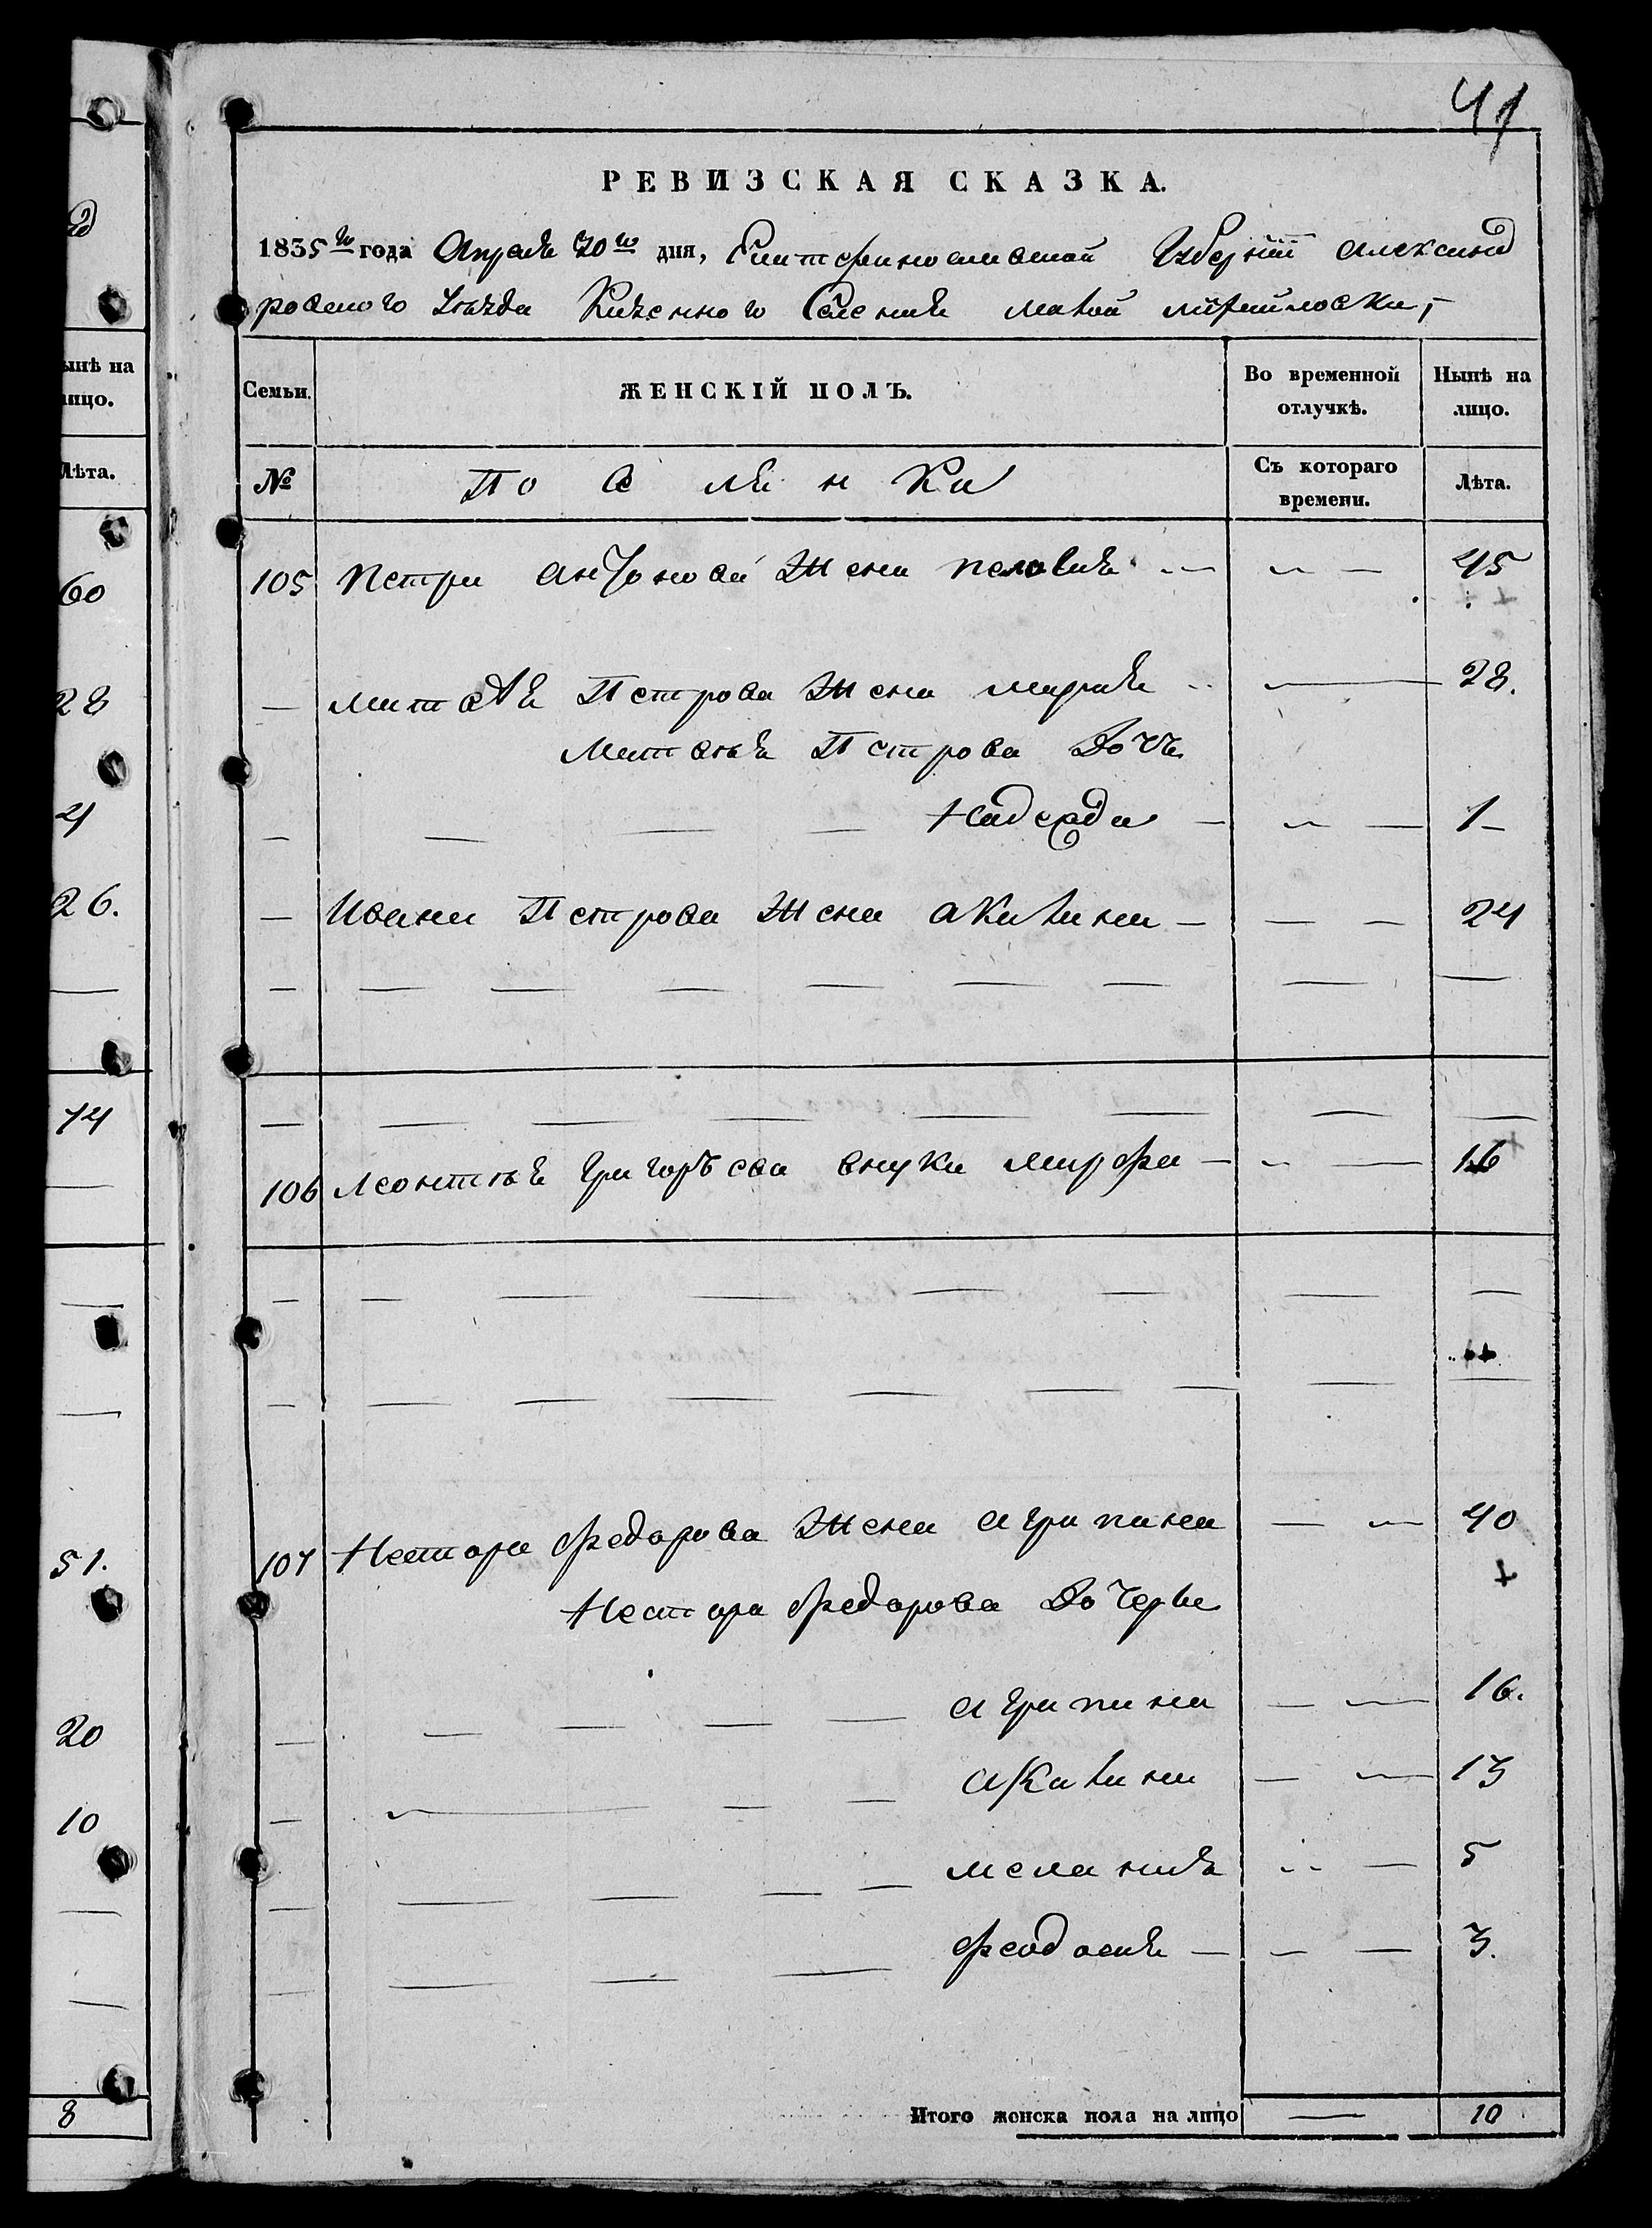 41
РЕВИЗСКАЯ СКАЗКА.
1835го года Апреля 20го дня, Екатеринославской Губернии Александ
ровского Уезда Казенного Селения малой михайловки,
Семьи. ЖЕНСКІЙ ПОЛЪ. Во временной отлучкѣ. Нынѣ на лицо.
№ Поселянки Съ котораго времени. Лѣта.
105 Петра Антонова Жена Пелагия 45
Матвея Петрова Жена мария 28.
Матвея Петрова Дочь
Надежда 1
Ивана Петрова Жена акилина 24
106 Леонтия Григорьева внука марфа 16
107 Нестора Федорова Жена агрипина 40
Нестора Федорова Дочери
агрипина 16.
акилина 13
мелания 5
феодосия 3.
Итого женска пола на лицо 10
ынѣ на
лицо.
Лѣта.
60
28
4
26.
14
51.
20
10
8